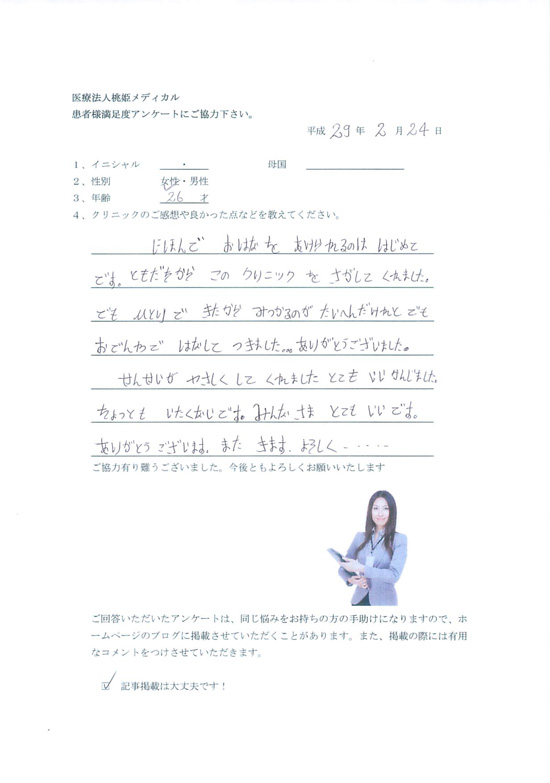 医療法人桃姫メディカル
患者様満足度アンケートにご協力下さい。
平成 29 年 2 月 24 日
1、イニシャル ・ 母国
2、性別 女性・男性
3、年齢 26 才
4、クリニックのご感想や良かった点などを教えてください。
にほんで おはなを あけられるのは はじめて
です。ともだちから この クリニック を さがして くれました。
でも ひとりで きたから みつかるのが たいへんだけれと でも
おでんわで はなして つきました。。。ありがとうございました。
せんせいが やさしく して くれました とても いい かんじました。
ちょっとも いたくないです。みんな さま とても いい です。
ありがとう ございます. また きます. よろしく - ・・・・
ご協力有り難うございました。今後ともよろしくお願いいたします
ご回答いただいたアンケートは、同じ悩みをお持ちの方の手助けになりますので、ホ
ームページのブログに掲載させていただくことがあります。また、掲載の際には有用
なコメントをつけさせていただきます。
☑ 記事掲載は大丈夫です！